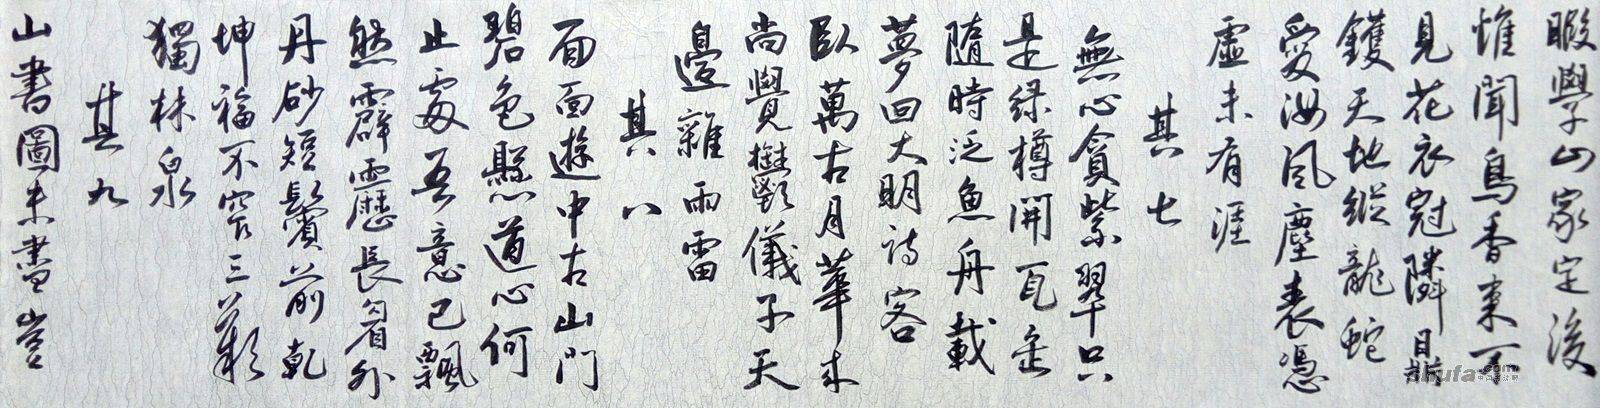 暇學山家定後
惟聞鳥香東不
見花衣冠隣
鑊天地縱龍蛇
愛汝風塵表憑
虛未有涯
其七
無心貪紫翠只
是綠樽開瓦缶
隨時泛魚舟載
夢回大明詩客
臥萬古月華來
尚覺 儀子天
邊雜雨雷
其八
面面遊中古山門
碧色懸道心何
止處吾意已飄
然霹靂長眉外
丹砂短鬢前乾
坤福不窄三
獨林泉
其九
山書圖未書豈
shufa